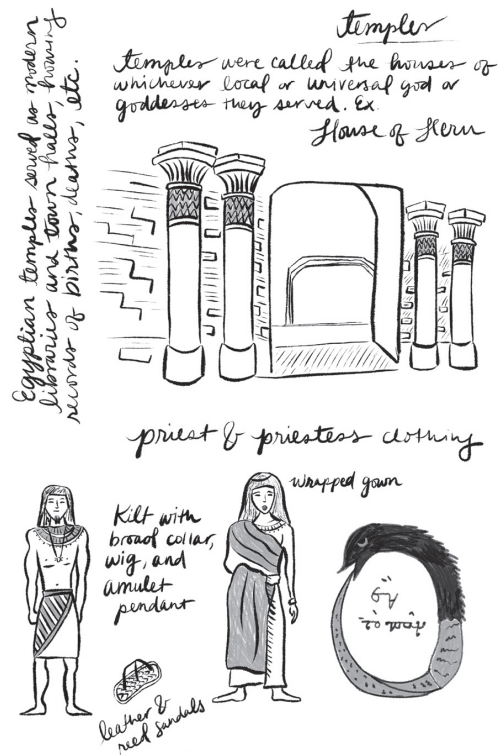 temples
temples were called the houses of
whichever local or universal god or
goddesses they served. Ex.
House of Heru
Egyptian temples served as modern
libraries and town halls, housing
records of births, deaths, etc.
priest & priestess clothing
Kilt with
broad collar,
wig, and
amulet
pendant
wrapped gown
leather &
reed sandals